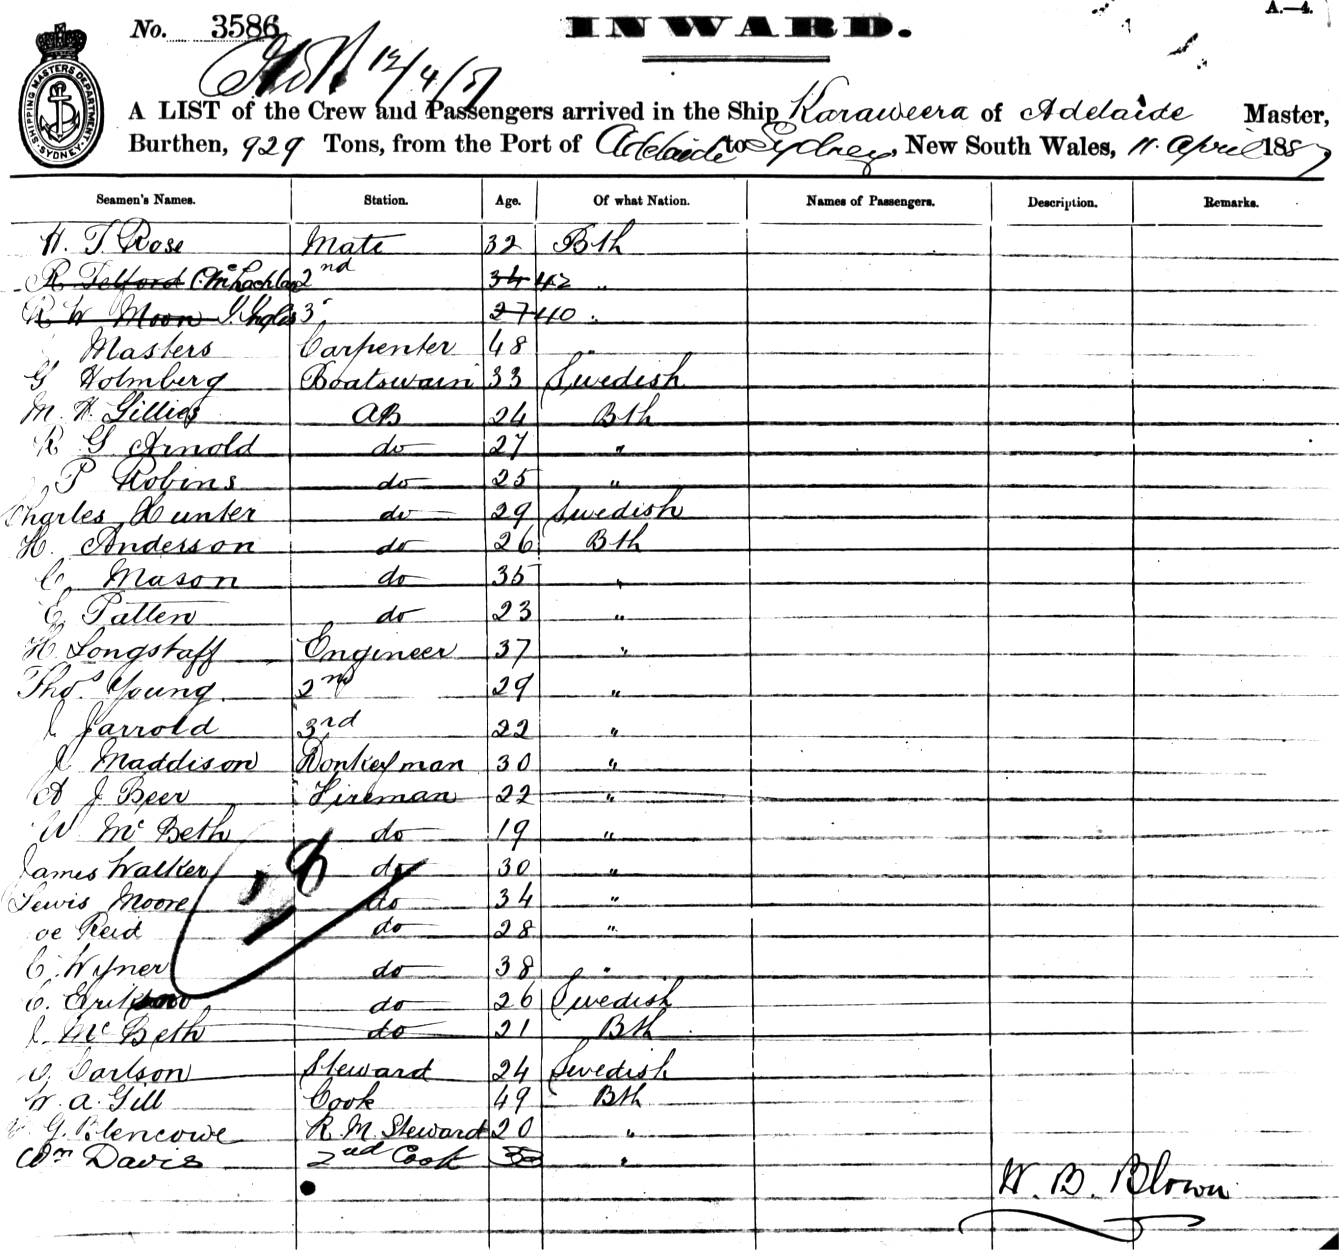 No. 3586
INWARD.
A.—4.
SHIPPING MASTERS DEPARTMENT SYDNEY
12/4/87
A LIST of the Crew and Passengers arrived in the Ship Karaweera of Adelaide Master,
Burthen, 929 Tons, from the Port of Adelaide to Sydney, New South Wales, 11 April 1887
Seamen's Names. Station. Age. Of what Nation. Names of Passengers. Description. Remarks.
H. T. Rose Mate 32 Bth
R Telford C. McLachlan 2nd 34 42 "
R W Moon J. Inglis 3 27 40 "
Masters Carpenter 48 "
G Holmberg Boatswain 33 Swedish
M. H. Gillies AB 24 Bth
R G Arnold do 27 "
P Robins do 25 "
Charles Hunter do 29 Swedish
H. Anderson do 26 Bth
C. Mason do 35 "
E Patten do 23 "
H. Longstaff Engineer 37 "
Thos. Young 2nd 29 "
J Jarrold 3rd 22 "
J Maddison Donkeyman 30 "
A J Beer Fireman 22 "
W McBeth do 19 "
James Walker do 30 "
Lewis Moore do 34 "
Joe Reid do 28 "
C. Wyner do 38 "
C. do 26 Swedish
J. McBeth do 21 Bth
Carlson Steward 24 Swedish
W. A. Gill Cook 49 Bth
G. Blencowe R. M. Steward 20 "
Wm Davis 2nd Cook 33 "
W. B. Blown